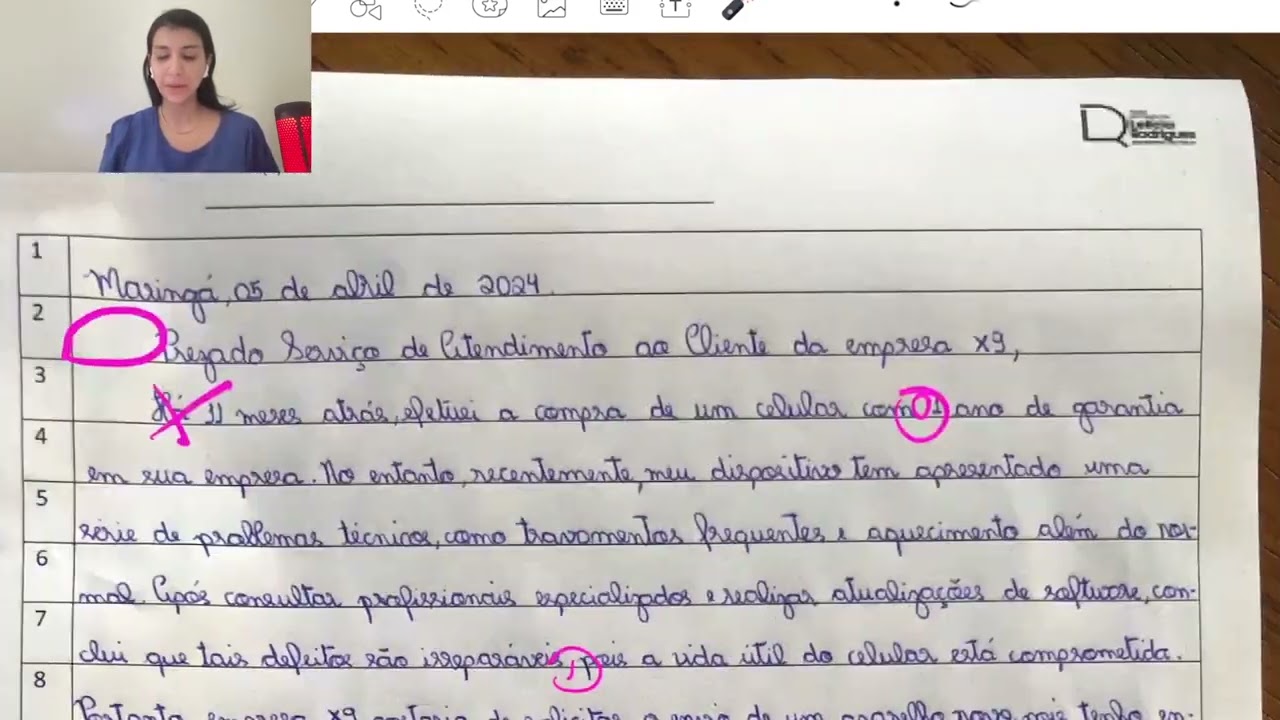 Letícia
Rodrigues
1
Maringá, 05 de abril de 2024.
2
Prezado Serviço de Atendimento ao Cliente da empresa X9,
3
Há 11 meses atrás, efetuei a compra de um celular com 01 ano de garantia
4
em sua empresa. No entanto, recentemente, meu dispositivo tem apresentado uma
5
série de problemas técnicos, como travamentos frequentes e aquecimento além do nor-
6
mal. Após consultar profissionais especializados e realizar atualizações de software, con-
7
clui que tais defeitos são irreparáveis, pois a vida útil do celular está comprometida.
8
Portanto, empresa X9, gostaria de solicitar o envio de um aparelho novo, pois tenho en-